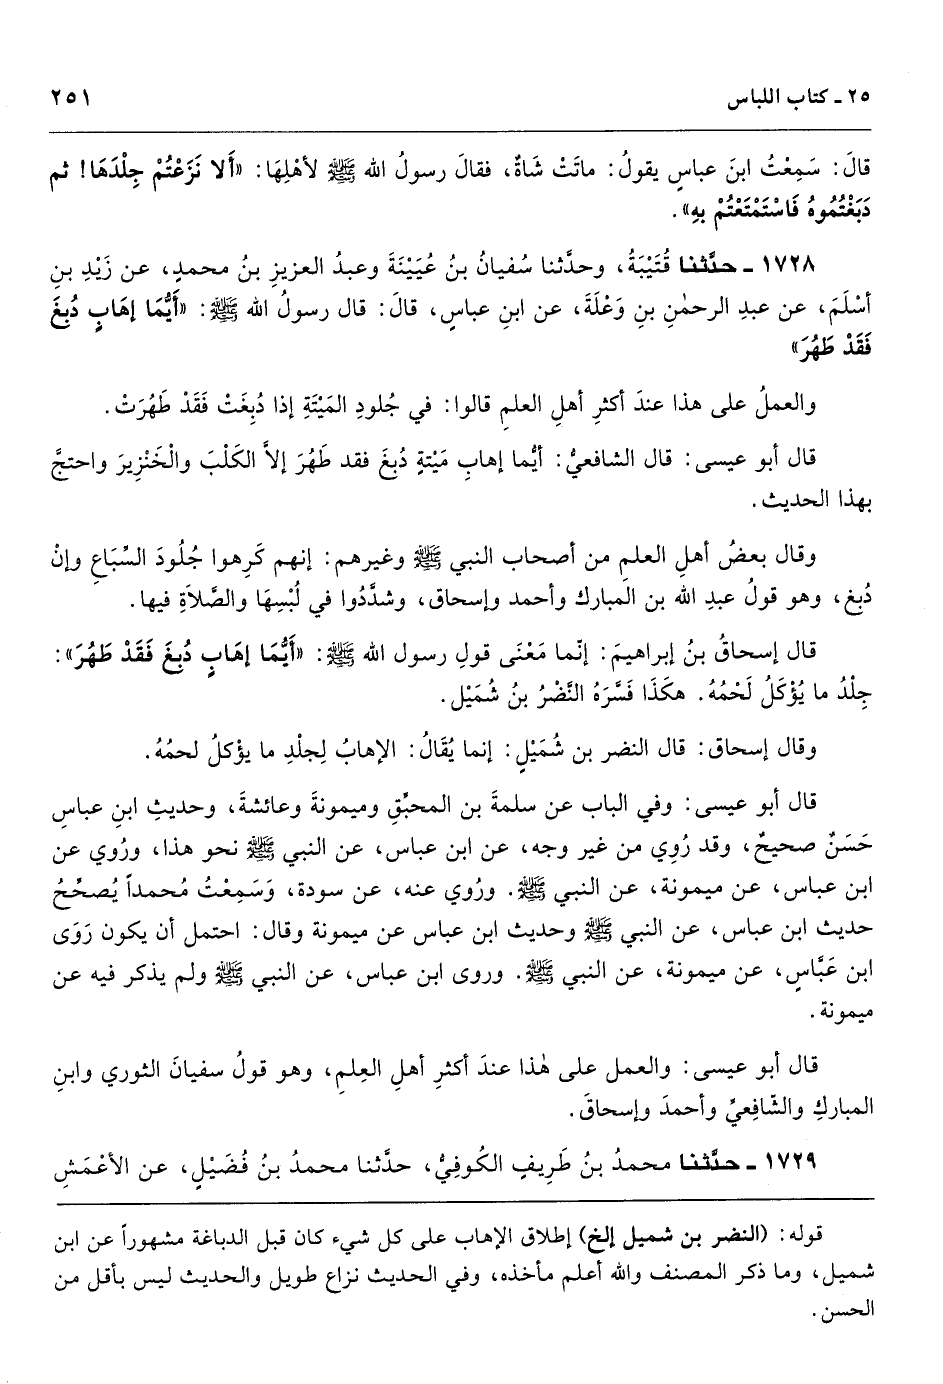 ٢٥ ـ كتاب اللباس ٢٥١
قالَ: سَمِعْتُ ابنَ عباسٍ يقولُ: ماتَتْ شَاةٌ، فقالَ رسولُ الله ﷺ لأهْلِهَا: «أَلا نَزَعْتُمْ جِلْدَهَا! ثم
دَبَغْتُمُوهُ فَاسْتَمْتَعْتُمْ بِهِ».
١٧٢٨ ـ حدَّثنا قُتَيْبَةُ، وحدَّثنا سُفيانُ بنُ عُيَيْنَةَ وعبدُ العزيزِ بنُ محمدٍ، عن زَيْدِ بنِ
أسْلَمَ، عن عبدِ الرحمٰنِ بنِ وَعْلَةَ، عن ابنِ عباسٍ، قالَ: قال رسولُ الله ﷺ: «أَيُّمَا إهَابٍ دُبِغَ
فَقَدْ طَهُرَ»
والعملُ على هذا عندَ أكثرِ أهلِ العلمِ قالوا: في جُلودِ المَيْتَةِ إذا دُبِغَتْ فَقَدْ طَهُرَتْ.
قال أبو عيسى: قال الشافعيُّ: أيُّما إهابِ مَيْتةٍ دُبغَ فقد طهُرَ إلاَّ الكَلْبَ والْخَنْزِيرَ واحتجَّ
بهذا الحديث.
وقال بعضُ أهلِ العلمِ من أصحاب النبي ﷺ وغيرهم: إنهم كَرِهوا جُلُودَ السِّبَاعِ وإنْ
دُبِغ، وهو قولُ عبدِ الله بن المبارك وأحمد وإسحاق، وشدَّدُوا في لُبْسِهَا والصَّلاَةِ فيها.
قال إسحاقُ بنُ إبراهيمَ: إنّما مَعْنَى قولِ رسول الله ﷺ: «أَيُّمَا إهَابٍ دُبِغَ فَقَدْ طَهُرَ»:
جِلْدُ ما يُؤْكَلُ لَحْمُهُ. هكَذَا فَسَّرَهُ النَّضْرُ بنُ شُمَيْل.
وقال إسحاق: قال النضر بن شُمَيْلٍ: إنما يُقَالُ: الإهابُ لِجلْدِ ما يؤْكلُ لحمُهُ.
قال أبو عيسى: وفي الباب عن سلمةَ بن المحبِّقِ وميمونةَ وعائشةَ، وحديثِ ابنِ عباسٍ
حَسَنٌ صحيحٌ، وقد رُوِي من غير وجه، عن ابن عباس، عن النبي ﷺ نحو هذا، ورُوي عن
ابن عباس، عن ميمونة، عن النبي ﷺ. ورُوي عنه، عن سودة، وَسَمِعْتُ مُحمداً يُصحِّحُ
حديث ابن عباس، عن النبي ﷺ وحديث ابن عباس عن ميمونة وقال: احتمل أن يكون رَوَى
ابن عَبَّاسٍ، عن ميمونة، عن النبي ﷺ. وروى ابن عباس، عن النبي ﷺ ولم يذكر فيه عن
ميمونة.
قال أبو عيسى: والعمل على هٰذا عندَ أكثرِ أهلِ العِلمِ، وهو قولُ سفيانَ الثوري وابنِ
المباركِ والشّافِعيِّ وأحمدَ وإسحاقَ.
١٧٢٩ ـ حدَّثنا محمدُ بنُ طَرِيفٍ الكُوفِيُّ، حدَّثنا محمدُ بنُ فُضَيْلٍ، عن الأعْمَشِ
قوله: (النضر بن شميل إلخ) إطلاق الإهاب على كل شيء كان قبل الدباغة مشهوراً عن ابن
شميل، وما ذكر المصنف والله أعلم مأخذه، وفي الحديث نزاع طويل والحديث ليس بأقل من
الحسن.